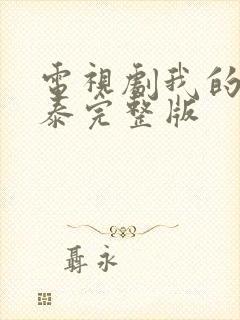 電視劇我的
泰完整版
聶永